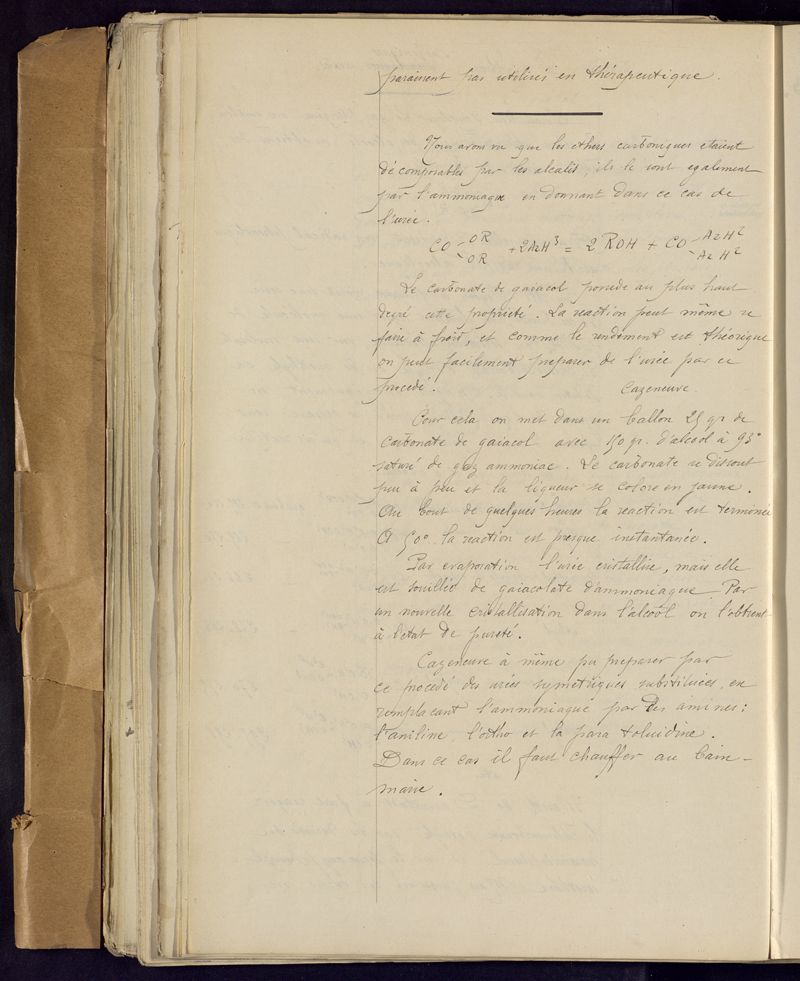 paraissent pas utilisés en thérapeutique.
Nous avons vu que les ethers carboniques etaient
décomposables par les alcalis, ils le sont egalement
par l'ammoniaque en donnant dans ce cas de
l'urée.
CO OR OR + 2AzH³ = 2 ROH + CO AzH² AzH²
Le carbonate de gaiacol possede au plus haut
degré cette propriété. La reaction peut même se
faire à froid, et comme le rendement est théorique
on peut facilement preparer de l'urée par ce
procédé. Cazeneuve.
Pour cela on met dans un ballon 25 gr de
carbonate de gaiacol avec 150 gr. d'alcool à 93°
saturé de gaz ammoniac. Le carbonate se dissout
peu à peu et la liqueur se colore en jaune.
Au bout de quelques heures la reaction est terminée
A 50° la reaction est presque instantanée.
Par evaporation l'urée cristallise, mais elle
est souillée de gaiacolate d'ammoniaque. Par
un nouvelle cristallisation dans l'alcool on l'obtient
à l'état de pureté.
Cazeneuve à même pu preparer par
ce procedé des urées symetriques substituées, en
remplacant l'ammoniaque par des amines:
l'aniline, l'ortho et la para toluidine.
Dans ce cas il faut chauffer au bain-
marie.